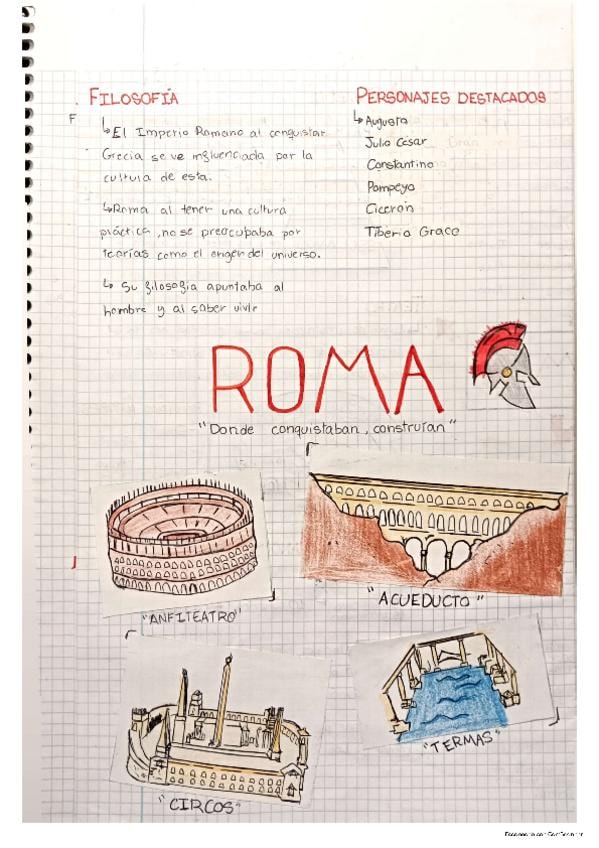 FILOSOFÍA
F
↳El Imperio Romano al conquistar
Grecia se ve influenciada por la
cultura de esta.
↳Roma al tener una cultura
práctica, no se preocupaba por
teorías como el origen del universo.
↳ Su filosofía apuntaba al
hombre y al saber vivir
PERSONAJES DESTACADOS
↳Augusto
Julio César
Constantino
Pompeyo
Cicerón
Tiberio Graco
ROMA
"Donde conquistaban, construían"
"ANFITEATRO"
"ACUEDUCTO"
"CIRCOS"
"TERMAS"